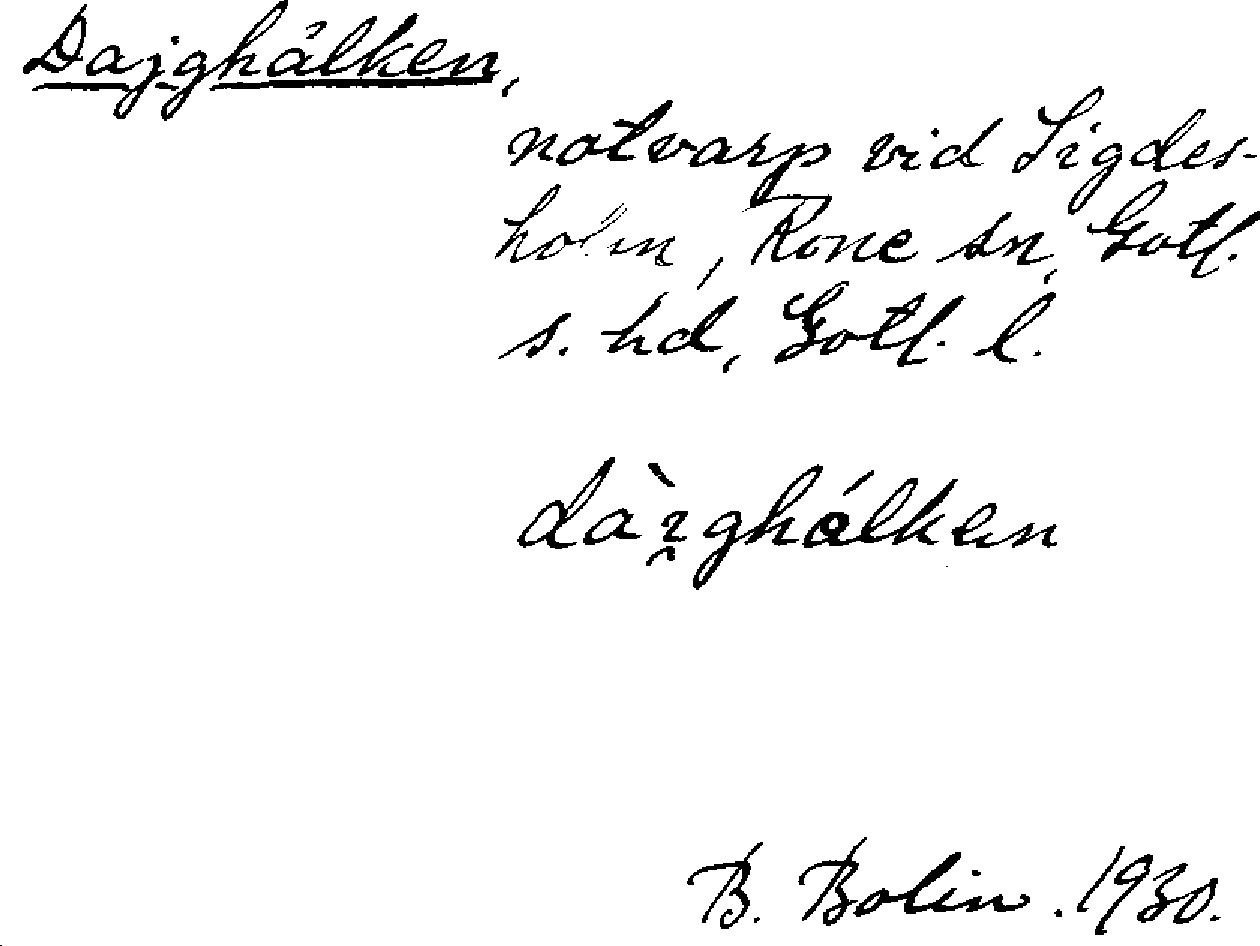 Dajghålken,
notvarp vid Sigdes-
holm, Rone sn, Gotl.
s. hd, Gotl. l.
B. Bolin. 1930.